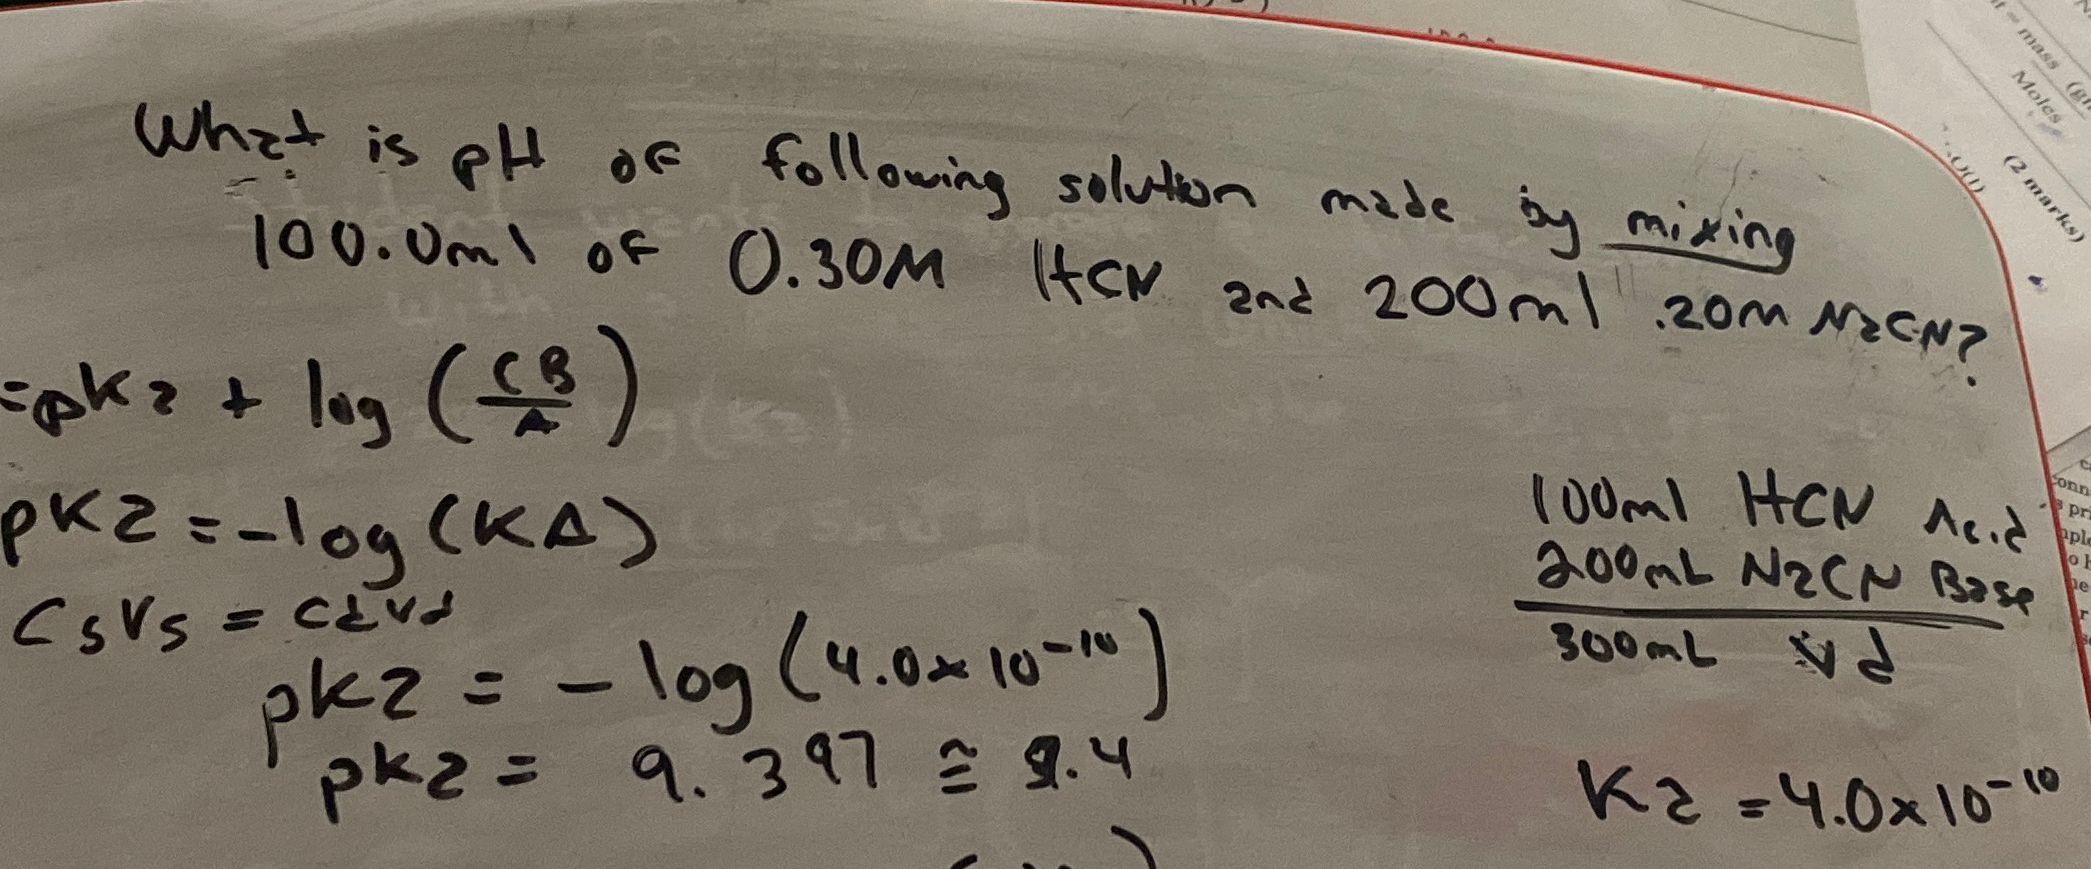 What is pH of following solution made by mixing
100.0ml of 0.30M HCN and 200ml .20M NaCN?
=pKa + log (CB/A)
pKa = -log (KA)
CsVs = CdVd
pKa = - log (4.0x10-10)
pKa = 9.397 ≅ 9.4
100ml HCN Acid
200mL NaCN Base
300mL Vd
Ka = 4.0x10-10
= mass
Moles
(2 marks)